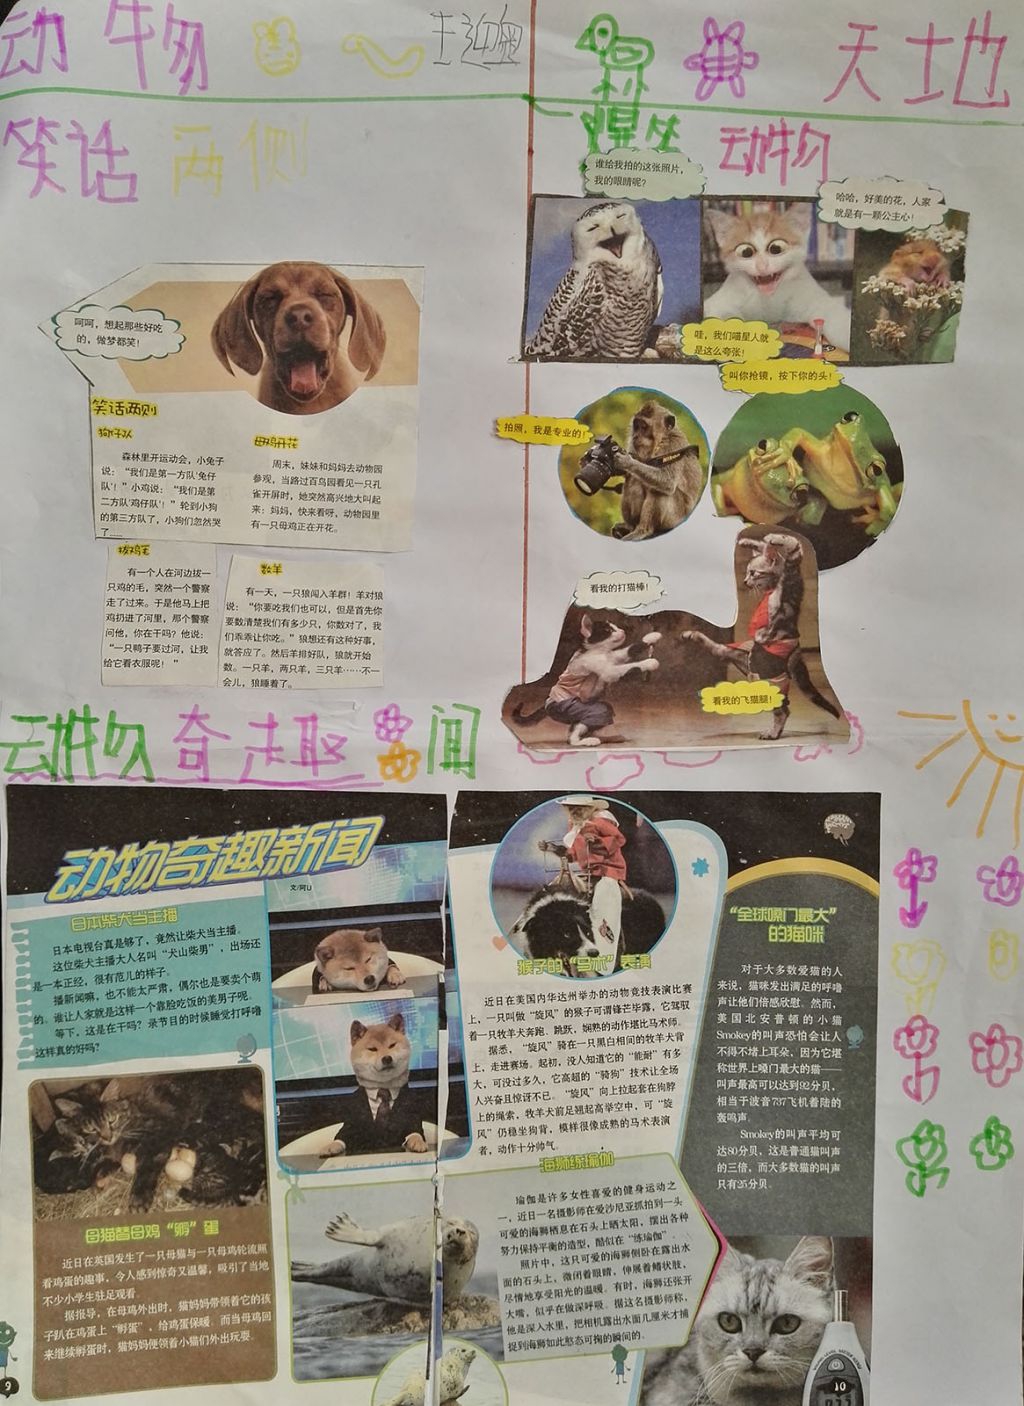 动物 天地
笑话两侧
动物
谁给我拍的这张照片，
我的眼睛呢？
哈哈，好美的花，人家
就是有一颗公主心！
哇，我们喵星人就
是这么夸张！
叫你抢镜，按下你的头！
拍照，我是专业的！
看我的打猫棒！
看我的飞猫腿！
呵呵，想起那些好吃
的，做梦都笑！
笑话两则
狗仔队
森林里开运动会，小兔子
说：“我们是第一方队‘兔仔
队’！”小鸡说：“我们是第
二方队‘鸡仔队’！”轮到小狗
的第三方队了，小狗们忽然哭
了……
母鸡开花
周末，妹妹和妈妈去动物园
参观，当路过百鸟园看见一只孔
雀开屏时，她突然高兴地大叫起
来：妈妈，快来看呀，动物园里
有一只母鸡正在开花。
拔鸡毛
有一个人在河边拔一
只鸡的毛，突然一个警察
走了过来。于是他马上把
鸡扔进了河里，那个警察
问他，你在干吗？他说：
“一只鸭子要过河，让我
给它看衣服呢！”
数羊
有一天，一只狼闯入羊群！羊对狼
说：“你要吃我们也可以，但是首先你
要数清楚我们有多少只，你数对了，我
们乖乖让你吃。”狼想还有这种好事，
就答应了。然后羊排好队，狼就开始
数。一只羊，两只羊，三只羊……不一
会儿，狼睡着了。
动物奇趣闻
动物奇趣新闻
文/阿U
日本柴犬当主播
日本电视台真是够了，竟然让柴犬当主播。
这位柴犬主播大人名叫“犬山柴男”，出场还
是一本正经，很有范儿的样子。
播新闻嘛，也不能太严肃，偶尔也是要卖个萌
的。谁让人家就是这样一个靠脸吃饭的美男子呢。
等下，这是在干吗？录节目的时候睡觉打呼噜
这样真的好吗？
母猫替母鸡“孵”蛋
近日在英国发生了一只母猫与一只母鸡轮流照
看鸡蛋的趣事，令人感到惊奇又温馨，吸引了当地
不少小学生驻足观看。
据报导，在母鸡外出时，猫妈妈带领着它的孩
子趴在鸡蛋上“孵蛋”，给鸡蛋保暖。而当母鸡回
来继续孵蛋时，猫妈妈便领着小猫们外出玩耍。
9
猴子的“马术”表演
近日在美国内华达州举办的动物竞技表演比赛
上，一只叫做“旋风”的猴子可谓锋芒毕露，它驾驭
着一只牧羊犬奔跑、跳跃，娴熟的动作堪比马术师。
据悉，“旋风”骑在一只黑白相间的牧羊犬背
上，走进赛场。起初，没人知道它的“能耐”有多
大，可没过多久，它高超的“骑狗”技术让全场
人兴奋且惊讶不已。“旋风”向上拉起套在狗脖
上的绳索，牧羊犬前足翘起高举空中，可“旋
风”仍稳坐狗背，模样很像成熟的马术表演
者，动作十分帅气。
海狮练瑜伽
瑜伽是许多女性喜爱的健身运动之
一，近日一名摄影师在爱沙尼亚抓拍到一头
可爱的海狮栖息在石头上晒太阳，摆出各种
努力保持平衡的造型，酷似在“练瑜伽”。
照片中，这只可爱的海狮侧卧在露出水
面的石头上，微闭着眼睛，伸展着鳍状肢，
尽情地享受阳光的温暖。有时，海狮还张开
大嘴，似乎在做深呼吸。据这名摄影师称，
他是深入水里，把相机露出水面几厘米才捕
捉到海狮如此憨态可掬的瞬间的。
“全球嗓门最大”
的猫咪
对于大多数爱猫的人
来说，猫咪发出满足的呼噜
声让他们倍感欣慰。然而，
美国北安普顿的小猫
Smokey的叫声恐怕会让人
不得不堵上耳朵，因为它堪
称世界上嗓门最大的猫——
叫声最高可以达到92分贝，
相当于波音737飞机着陆的
轰鸣声。
Smokey的叫声平均可
达80分贝，这是普通猫叫声
的三倍，而大多数猫的叫声
只有25分贝。
10